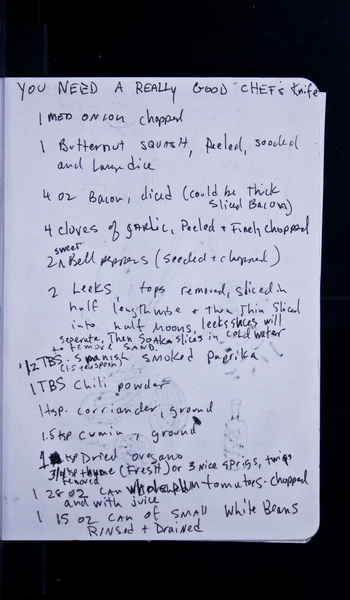 YOU NEED A REALLY GOOD CHEF'S Knife
1 MED ONION chopped
1 Butternut SQUASH, Peeled, seeded
and Large dice
4 oz Bacon, diced (could be thick
Sliced Bacon)
4 cloves of garlic, Peeled + Finely chopped
sweet
2 Bell peppers (seeded + chopped)
2 Leeks, tops removed, sliced in
half lengthwise + then thin sliced
into half moons, leek slices will
seperate, Then SOAK slices in cold water
to remove SAND.
1/2 TBS. Spanish smoked Paprika
(1.5 teaspoon)
1 TBS Chili powder
1 tsp. corriander, ground
1.5 tsp cumin, ground
1 tsp Dried oregano
3/4 tsp thyme (Fresh) or 3 nice sprigs, twigs
removed
1 28 oz can whole plum tomatoes - chopped
and with juice
1 15 oz can of SMALL White Beans
Rinsed + Drained